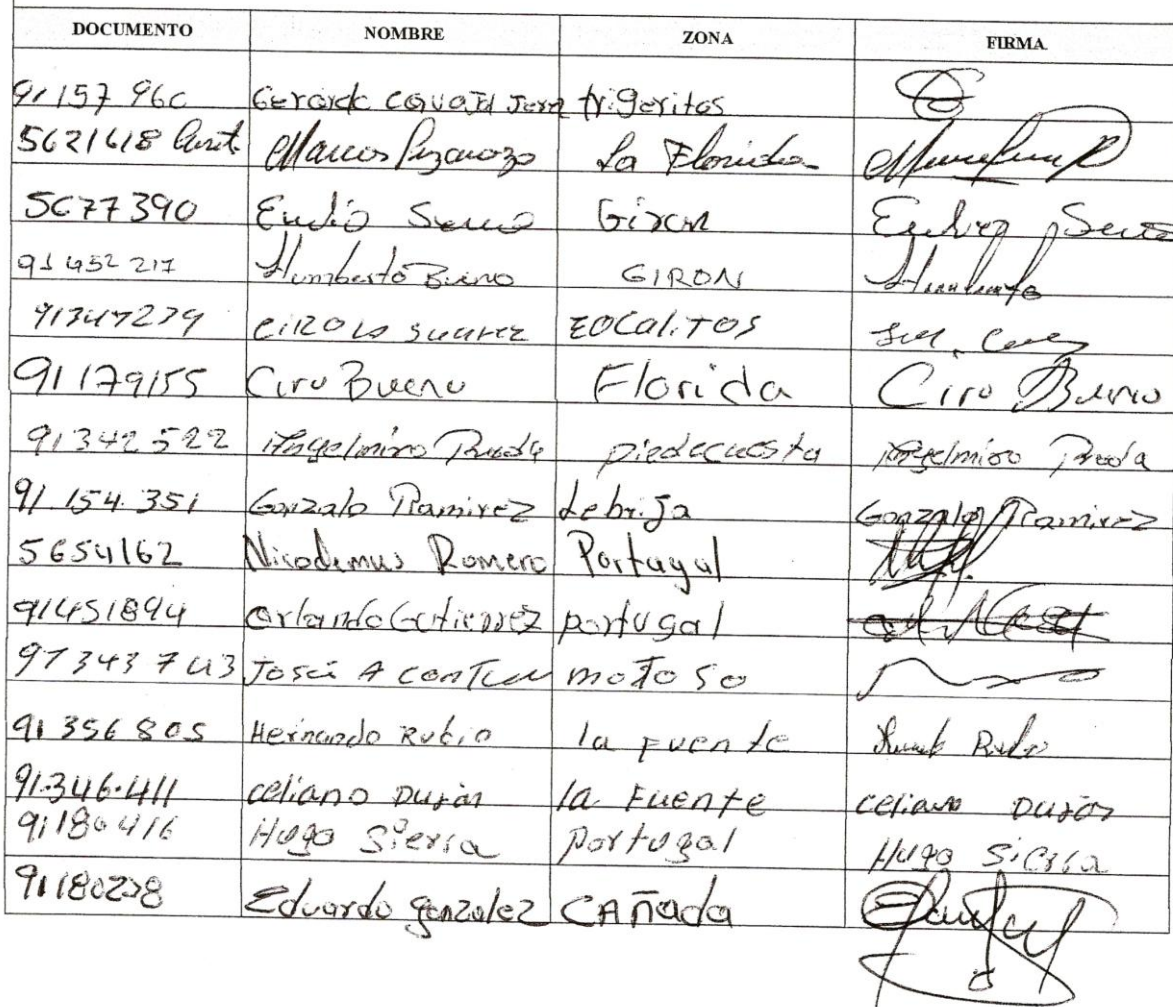 DOCUMENTO NOMBRE ZONA FIRMA
91157 960 Gerardo trigeritos
5621618 Marcos La Florida
5677390 Giron
91452217 Humberto Bueno GIRON Humberto
91347239 suarez ZOCALITOS
91179155 Ciro Bueno Florida Ciro Bueno
91342522 Angelmiro Rueda piedecuesta Angelmiro Rueda
91.154.351 Gonzalo Ramirez Lebrija Gonzalo Ramirez
5654162 Nicodemus Romero Portugal
91451894 Orlando Gutierrez portugal
91343743 José A motoso
91356805 Hernando Rubio la Fuente Rubio
91.346.411 celiano Durán la Fuente celiano Durán
91180416 Hugo Sierra portugal Hugo Sierra
91180238 Eduardo gonzalez CAñada